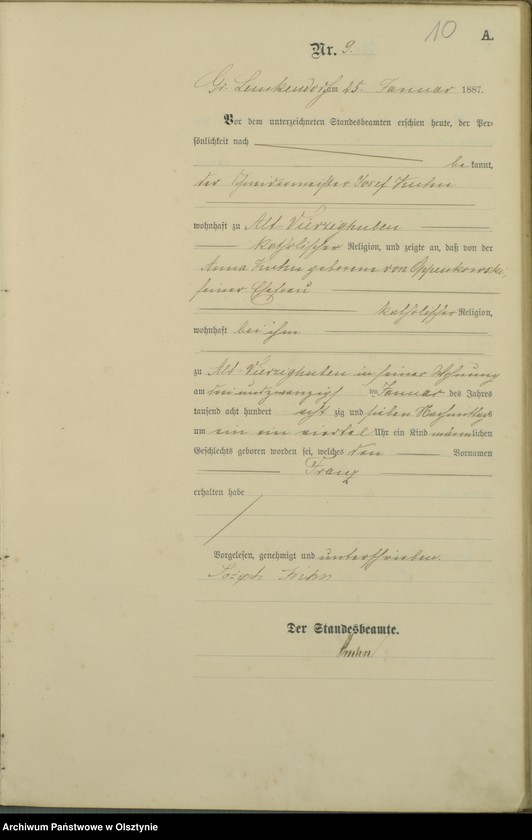 10
A.
Nr. 9.
Gr. Lemkendorf am 25. Januar 1887.
Vor dem unterzeichneten Standesbeamten erschien heute, der Per=
sönlichkeit nach
bekannt,
der Schneidermeister Josef
wohnhaft zu Alt Vierzighuben
katholischer Religion, und zeigte an, daß von der
Anna geborene von
seiner Ehefrau
katholischer Religion,
wohnhaft bei ihm
zu Alt-Vierzighuben in seiner Wohnung
am drei und zwanzigsten Januar des Jahres
tausend acht hundert achtzig und sieben Nachmittags
um ein ein viertel Uhr ein Kind männlichen
Geschlechts geboren worden sei, welches den Vornamen
Franz
erhalten habe
Vorgelesen, genehmigt und unterschrieben.
Der Standesbeamte.
Archiwum Państwowe w Olsztynie